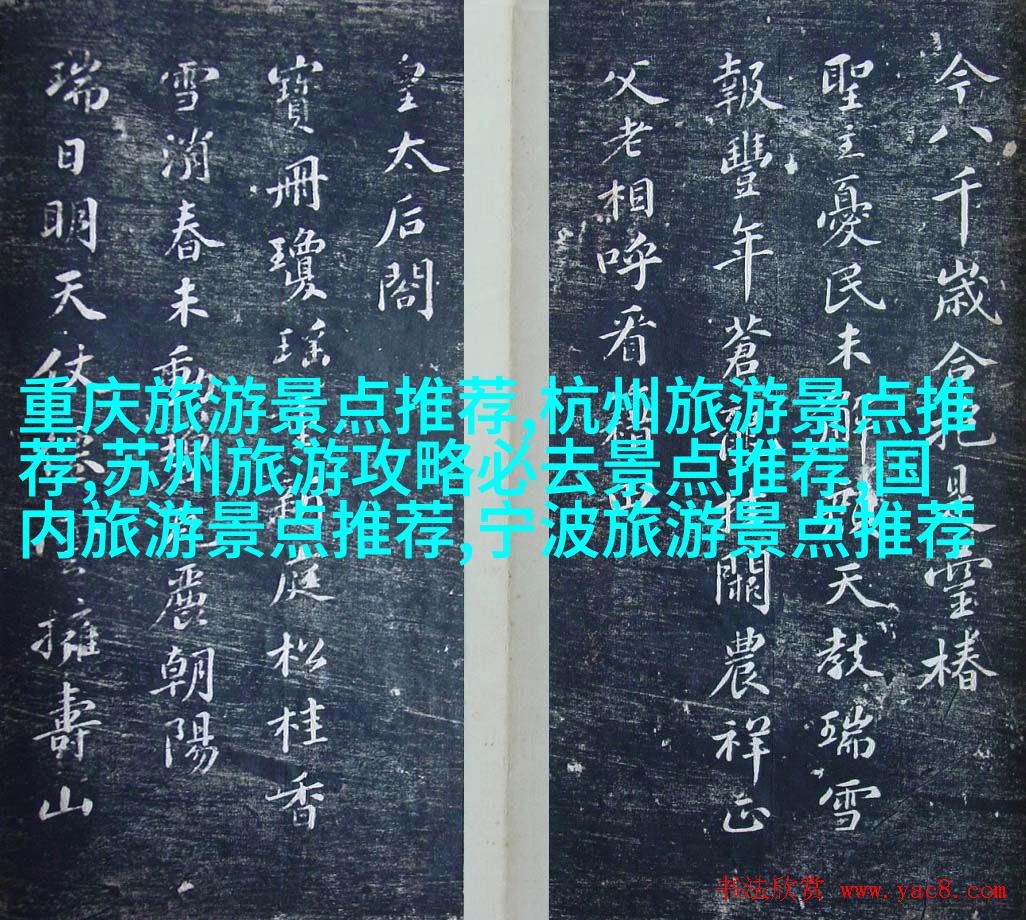 今八千歲合抱是靈椿
聖主憂民未解天教瑞雪
報豐年蒼龍掛闕農祥正
父老相呼看
皇太后閣
寶冊瓊瑤庭松桂香
雪消春未動麗朝陽
瑞日明天仗擁壽山
重庆旅游景点推荐,杭州旅游景点推
荐,苏州旅游攻略必去景点推荐,国
内旅游景点推荐,宁波旅游景点推荐
书法欣赏 www.yac8.com